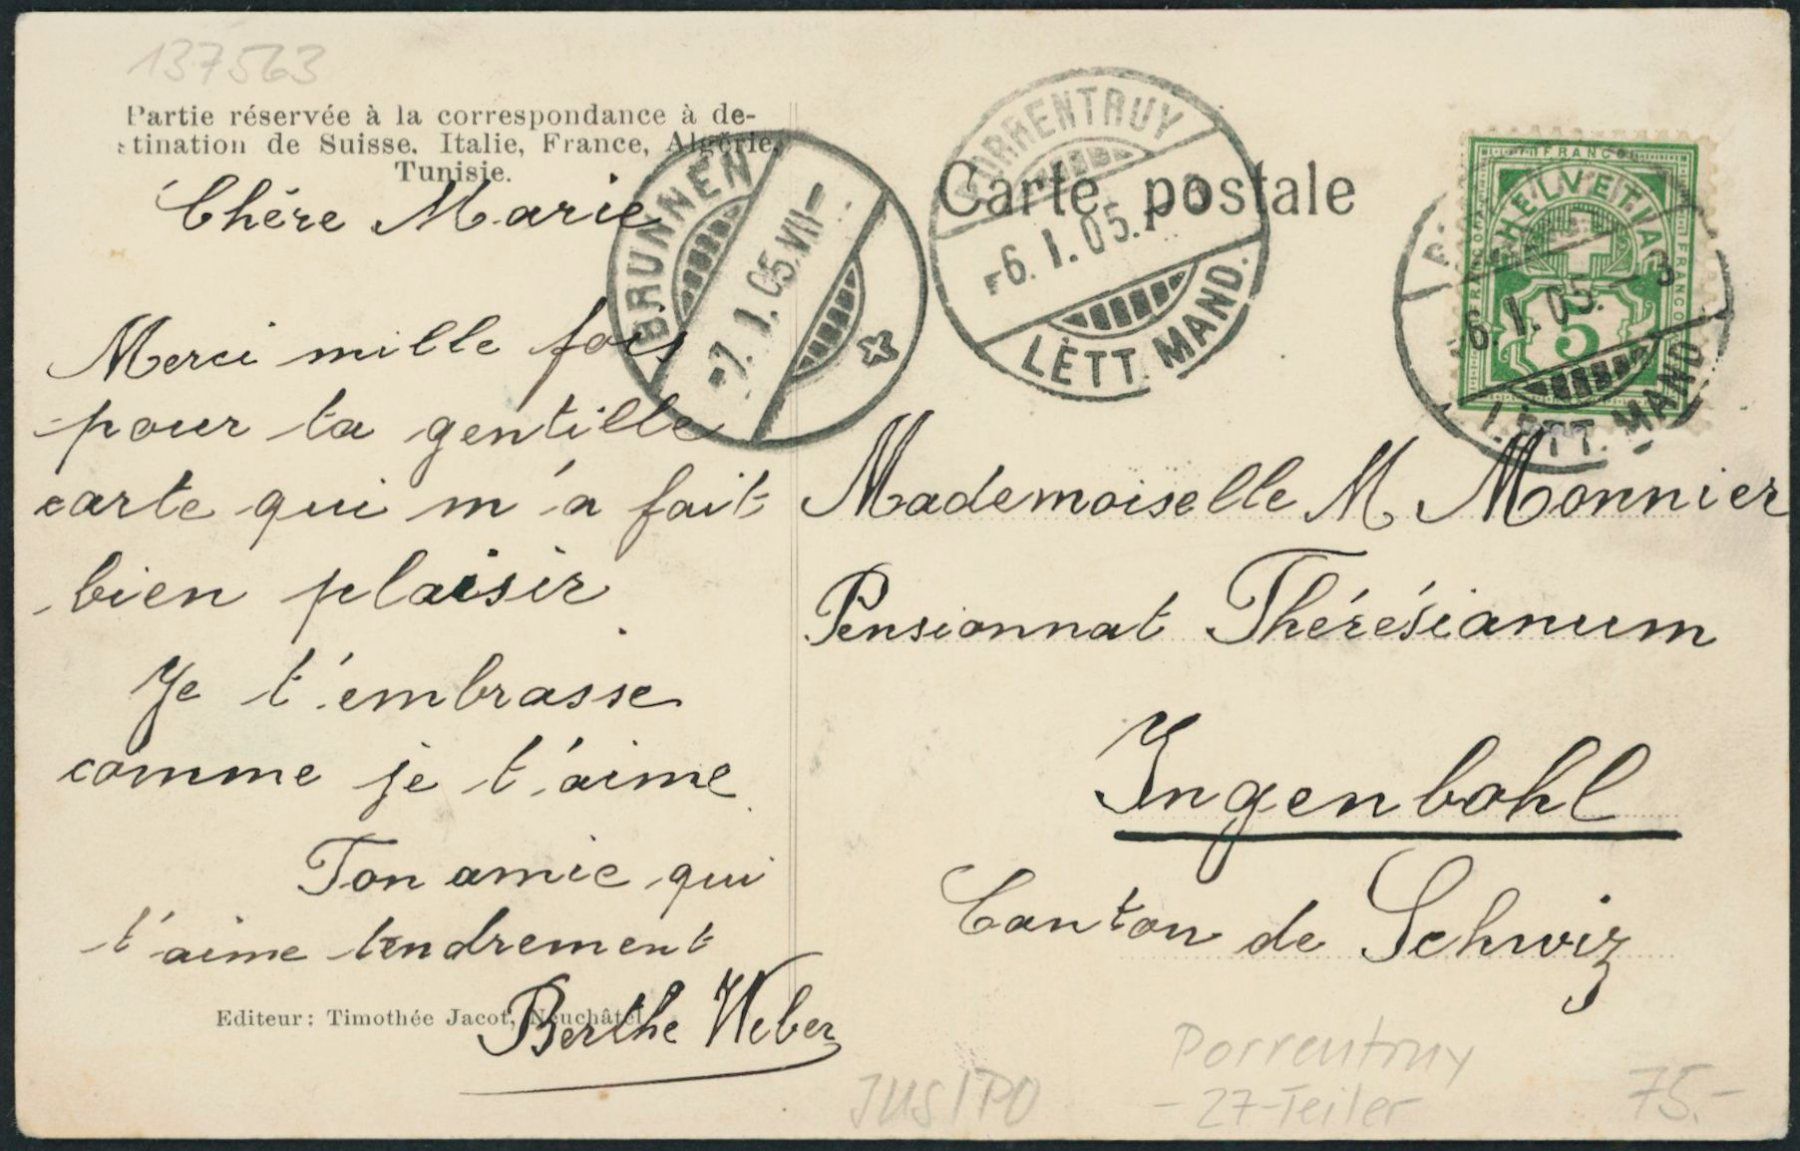 137563
Partie réservée à la correspondance à de-
stination de Suisse, Italie, France, Algérie,
Tunisie.
Carte postale
BRUNNEN
-7.1.05.VII-
PORRENTRUY
-6.1.05.-3
LETT. MAND.
FRANCO
HELVETIA
FRANCO
FRANCO
5
6.1.05.-3
LETT. MAND.
Chère Marie
Merci mille fois
pour ta gentille
carte qui m'a fait
bien plaisir
Je t'embrasse
comme je t'aime
Ton amie qui
t'aime tendrement
Berthe Weber
Editeur: Timothée Jacot, Neuchâtel
Mademoiselle M. Monnier
Pensionnat Thérésianum
Ingenbohl
Canton de Schwiz
Porrentruy
-27-Teiler
75.-